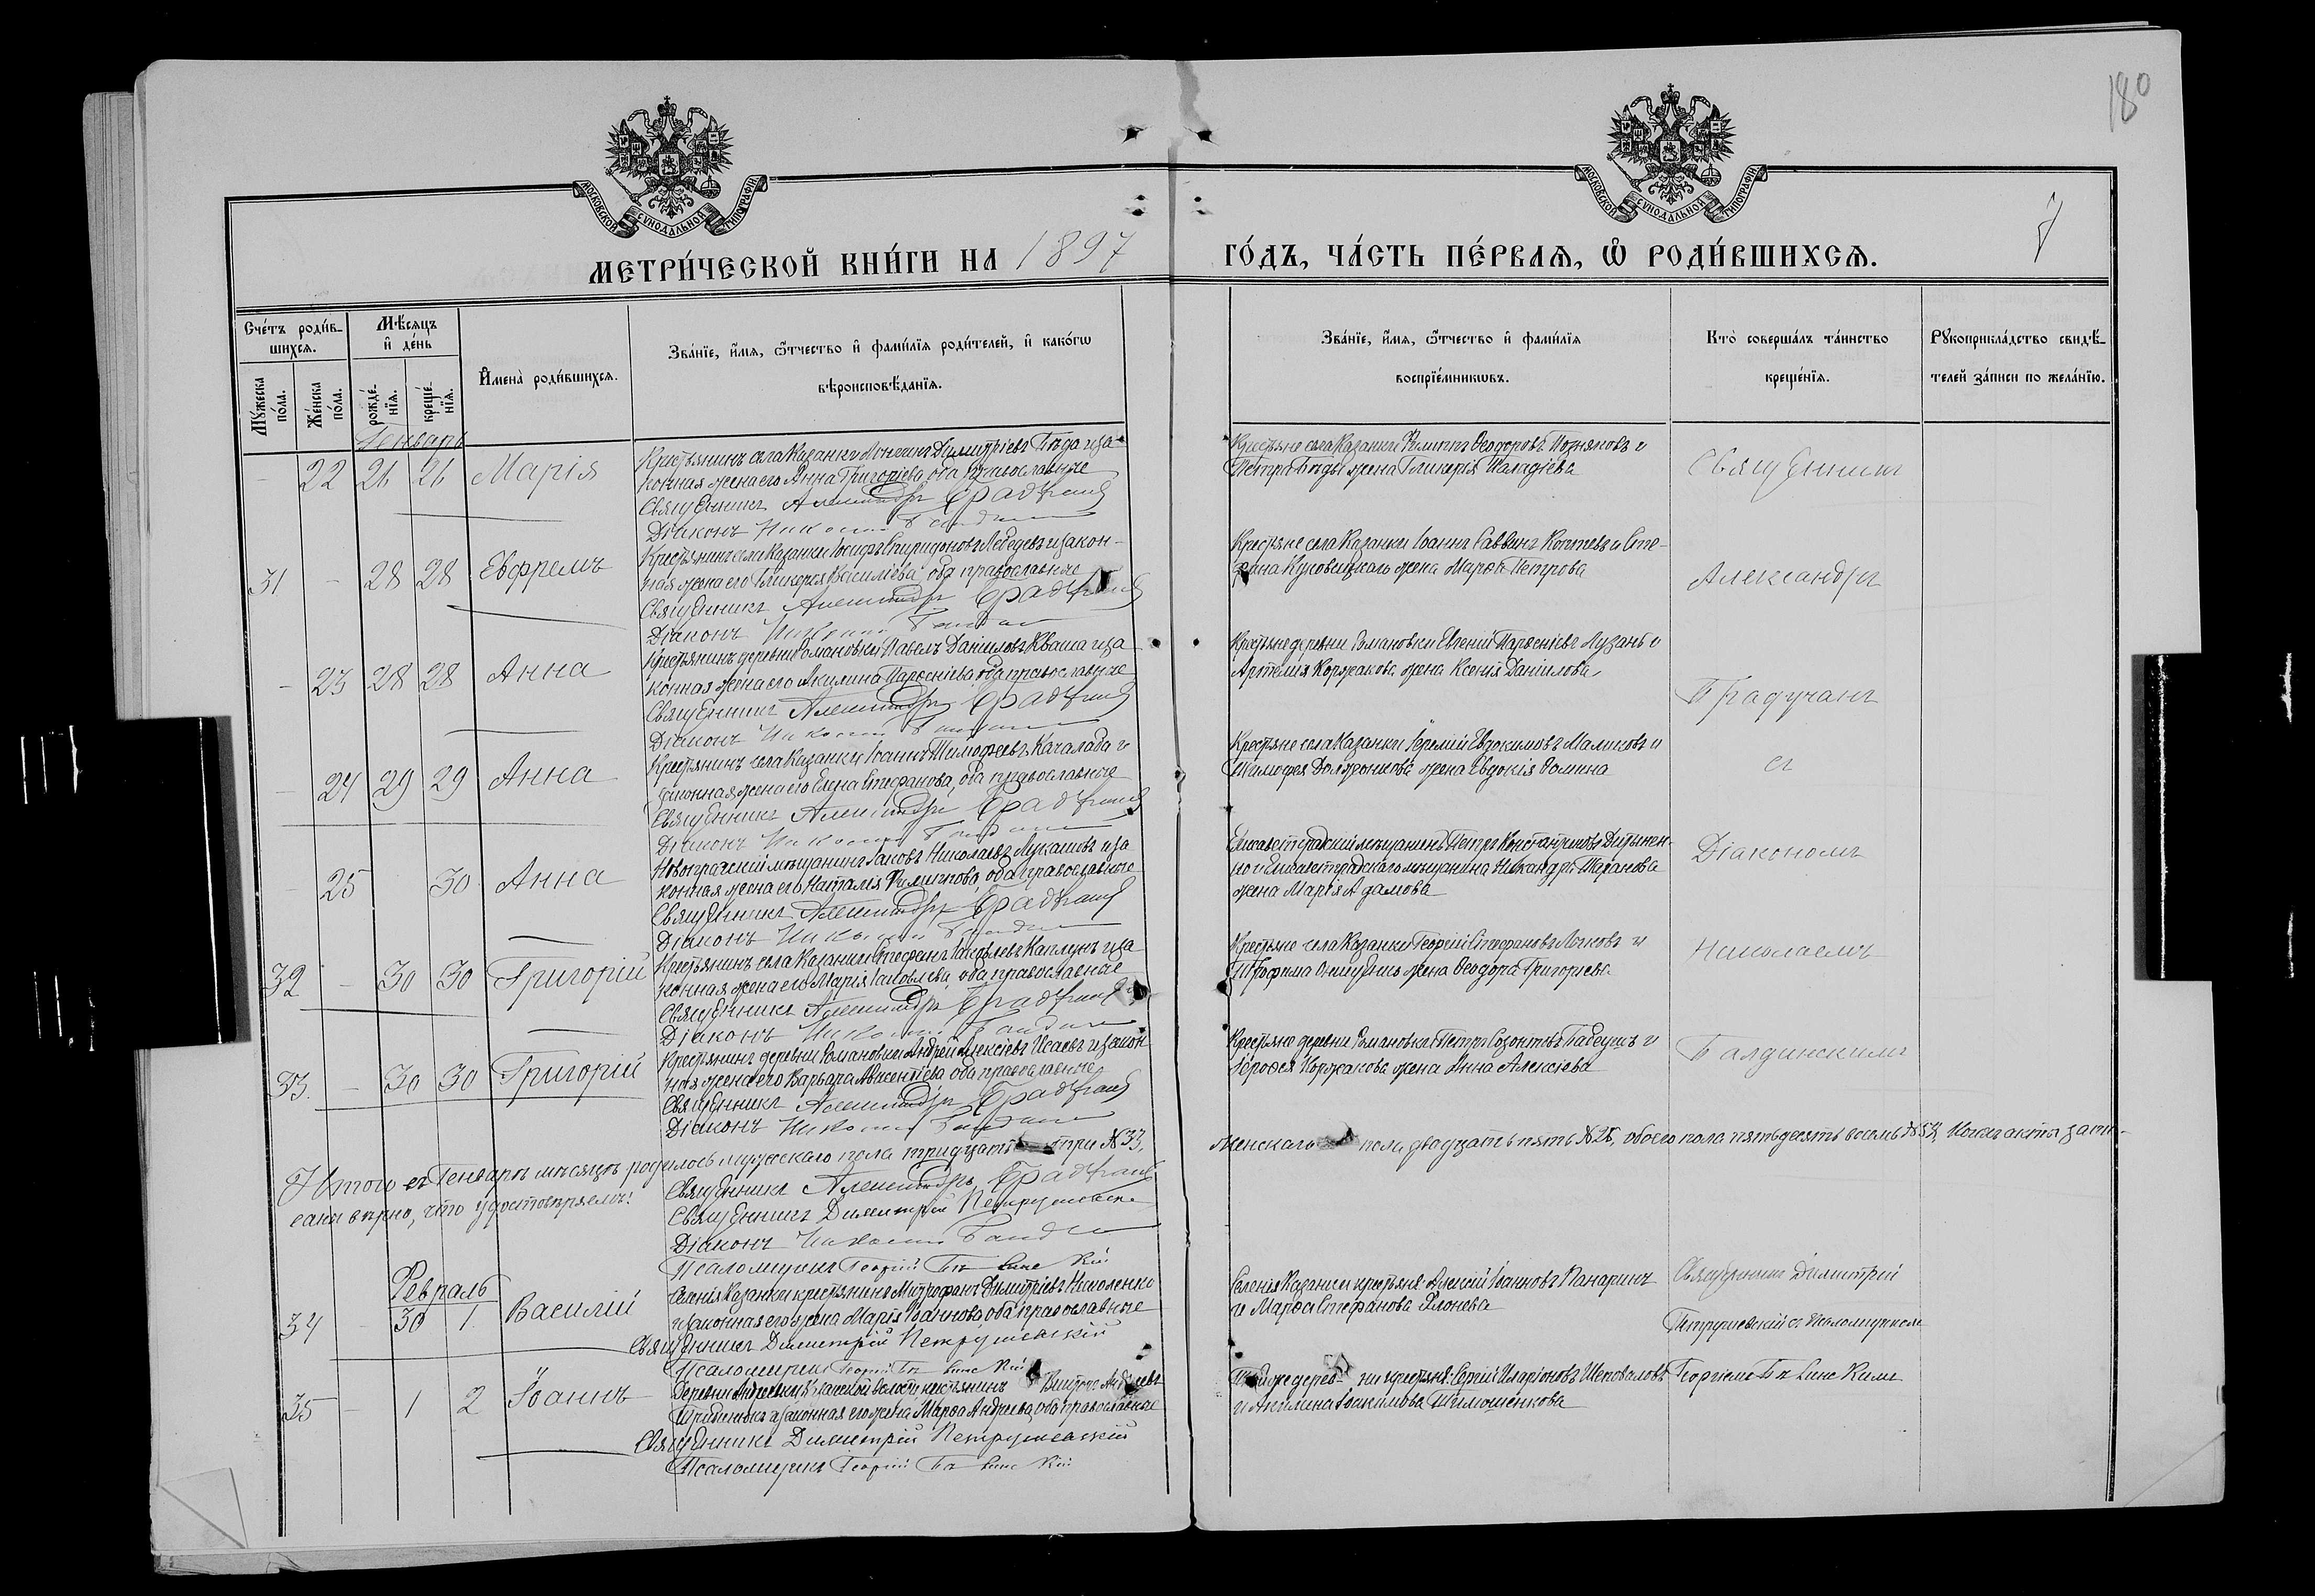 180
МОСКОВСКОЙ СУНОДАЛЬНОЙ ТИПОГРАФІИ
МОСКОВСКОЙ СУНОДАЛЬНОЙ ТИПОГРАФІИ
7
МЕТРИ́ЧЕСКОЙ КНИ́ГИ НА 1897
ГО́ДЪ, ЧА́СТЬ ПЕ́РВАѦ, Ѡ҆ РОДИ́ВШИХСѦ.
Сче́тъ роди́в-
шихсѧ.
Мѣ́сяцъ
и҆ де́нь
Мꙋ́жеска
по́ла.
Же́нска
по́ла.
рожде́-
нїѧ.
креще́-
нїѧ.
И҆мена̀ роди́вшихсѧ.
Зва́нїе, и҆́мѧ, ѻ҆́тчество и҆ фами́лїѧ роди́телей, и҆ како́гѡ
вѣроисповѣ́данїѧ.
Зва́нїе, и҆́мѧ, ѻ҆́тчество и҆ фами́лїѧ
воспрїе́мникѡвъ.
Кто̀ соверша́лъ та́инство
креще́нїѧ.
Рꙋкоприкла́дство свидѣ́-
телей за́писи по жела́нїю.
Генварь
- 22 26 26 Марія
Крестьянинъ села Казанки Лонгинъ Димитріевъ Бѣда и за-
конная жена его Анна Григоріева, оба православные
Священникъ Александръ Брадучанъ
Діаконъ Николай
Крестьяне села Казанки Филиппъ Ѳеодоровъ Позняковъ и
Петра Бѣды жена Гликерія Паладіева
Священникъ
31 - 28 28 Евфремъ
Крестьянинъ села Казанки Іосифъ Спиридоновъ Лебедевъ и закон-
ная жена его Гликерія Василіева, оба православные
Священникъ Александръ Брадучанъ
Діаконъ Николай
Крестьяне села Казанки Іоаннъ Саввинъ Коптевъ и Сте-
фана Куковицкаго жена Марѳа Петрова
Александръ
- 23 28 28 Анна
Крестьянинъ деревни Романовки Павелъ Даніиловъ Кваша и за-
конная жена его Акилина Парѳеніева, оба православные
Священникъ Александръ Брадучанъ
Діаконъ Николай
Крестьяне деревни Романовки Евгеній Парѳеніевъ Лузанъ и
Артемія Коржакова жена Ксенія Даніилова
Брадучанъ
- 24 29 29 Анна
Крестьянинъ села Казанки Іоаннъ Тимоѳеевъ Качалаба и
законная жена его Елена Стефанова, оба православные
Священникъ Александръ Брадучанъ
Діаконъ Николай
Крестьяне села Казанки Іеремій Евдокимовъ Маликовъ и
Тимоѳея Долженкова жена Евдокія Ѳомина
съ
- 25 30 Анна
мѣщанинъ Іаковъ Николаевъ Лукашовъ и за-
конная жена его Наталія Филиппова, оба православные
Священникъ Александръ Брадучанъ
Діаконъ Николай
Елисаветградскій мѣщанинъ Петръ Константиновъ Дитынен-
ко и Елисаветградскаго мѣщанина Никандра Таранова
жена Марія Адамова
Діакономъ
32 - 30 30 Григорій
Крестьянинъ села Казанки Стефанъ Іаковлевъ Каплунъ и за-
конная жена его Марія Іаковлева, оба православные
Священникъ Александръ Брадучанъ
Діаконъ Николай
Крестьяне села Казанки Георгій Стефановъ Лочковъ и
Трофима жена Ѳеодора Григоріева
Николаемъ
33. - 30 30 Григорій
Крестьянинъ деревни Романовки Андрей Алексіевъ Исаевъ и закон-
ная жена его Варвара Авксентіева, оба православные
Священникъ Александръ Брадучанъ
Діаконъ Николай
Крестьяне деревни Романовки Петръ Созонтовъ Бабецъ и
Іероѳея Коржакова жена Анна Алексіева
Балдинскимъ
Итого въ Генварѣ мѣсяцѣ родилось мужескаго пола тридцать три №33,
женскаго пола двадцать пять №25, обоего пола пятьдесятъ восемь №58, акты запи-
саны вѣрно, что удостовѣряемъ:
Священникъ Александръ Брадучанъ
Священникъ Димитрій Петрушевскій
Діаконъ Николай
Псаломщикъ Георгій
Февраль
34 - 30 1 Василій
Селенія Казанки крестьянинъ Митрофанъ Димитріевъ Николенко
и законная его жена Марія Іоаннова, оба православные
Священникъ Димитрій Петрушевскій
Псаломщикъ Георгій
Селенія Казанки крестьяне: Алексій Іоанновъ Панаринъ
и Марѳа Стефанова
Священникъ Димитрій
Петрушевскій съ псаломщикомъ
35 - 1 2 Іоаннъ
Деревни волости крестьянинъ
и законная его жена Марѳа Андреева, оба православные
Священникъ Димитрій Петрушевскій
Псаломщикъ Георгій
Той же деревни крестьяне: Сергій Иларіоновъ Шеповаловъ
и Акилина Іоакимова Тимошенкова
Георгіемъ